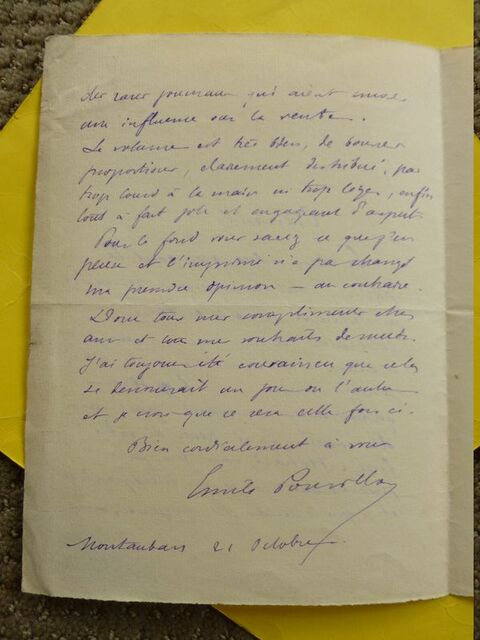 des rares journaux qui aient encore
une influence sur la vente.
Le volume est très bien, de bonnes
proportions, clairement distribué, pas
trop lourd à la main ni trop léger, enfin
tout à fait joli et engageant d'aspect.
Pour le fond vous savez ce que j'en
pense et l'imprimé n'a pas changé
ma première opinion — au contraire.
Donc tous mes compliments cher
ami et tous mes souhaits de succès.
J'ai toujours été convaincu que cela
se dessinerait un jour ou l'autre
et je crois que ce sera cette fois ci.
Bien cordialement à vous
Emile Pouvillon
Montauban 21 Octobre